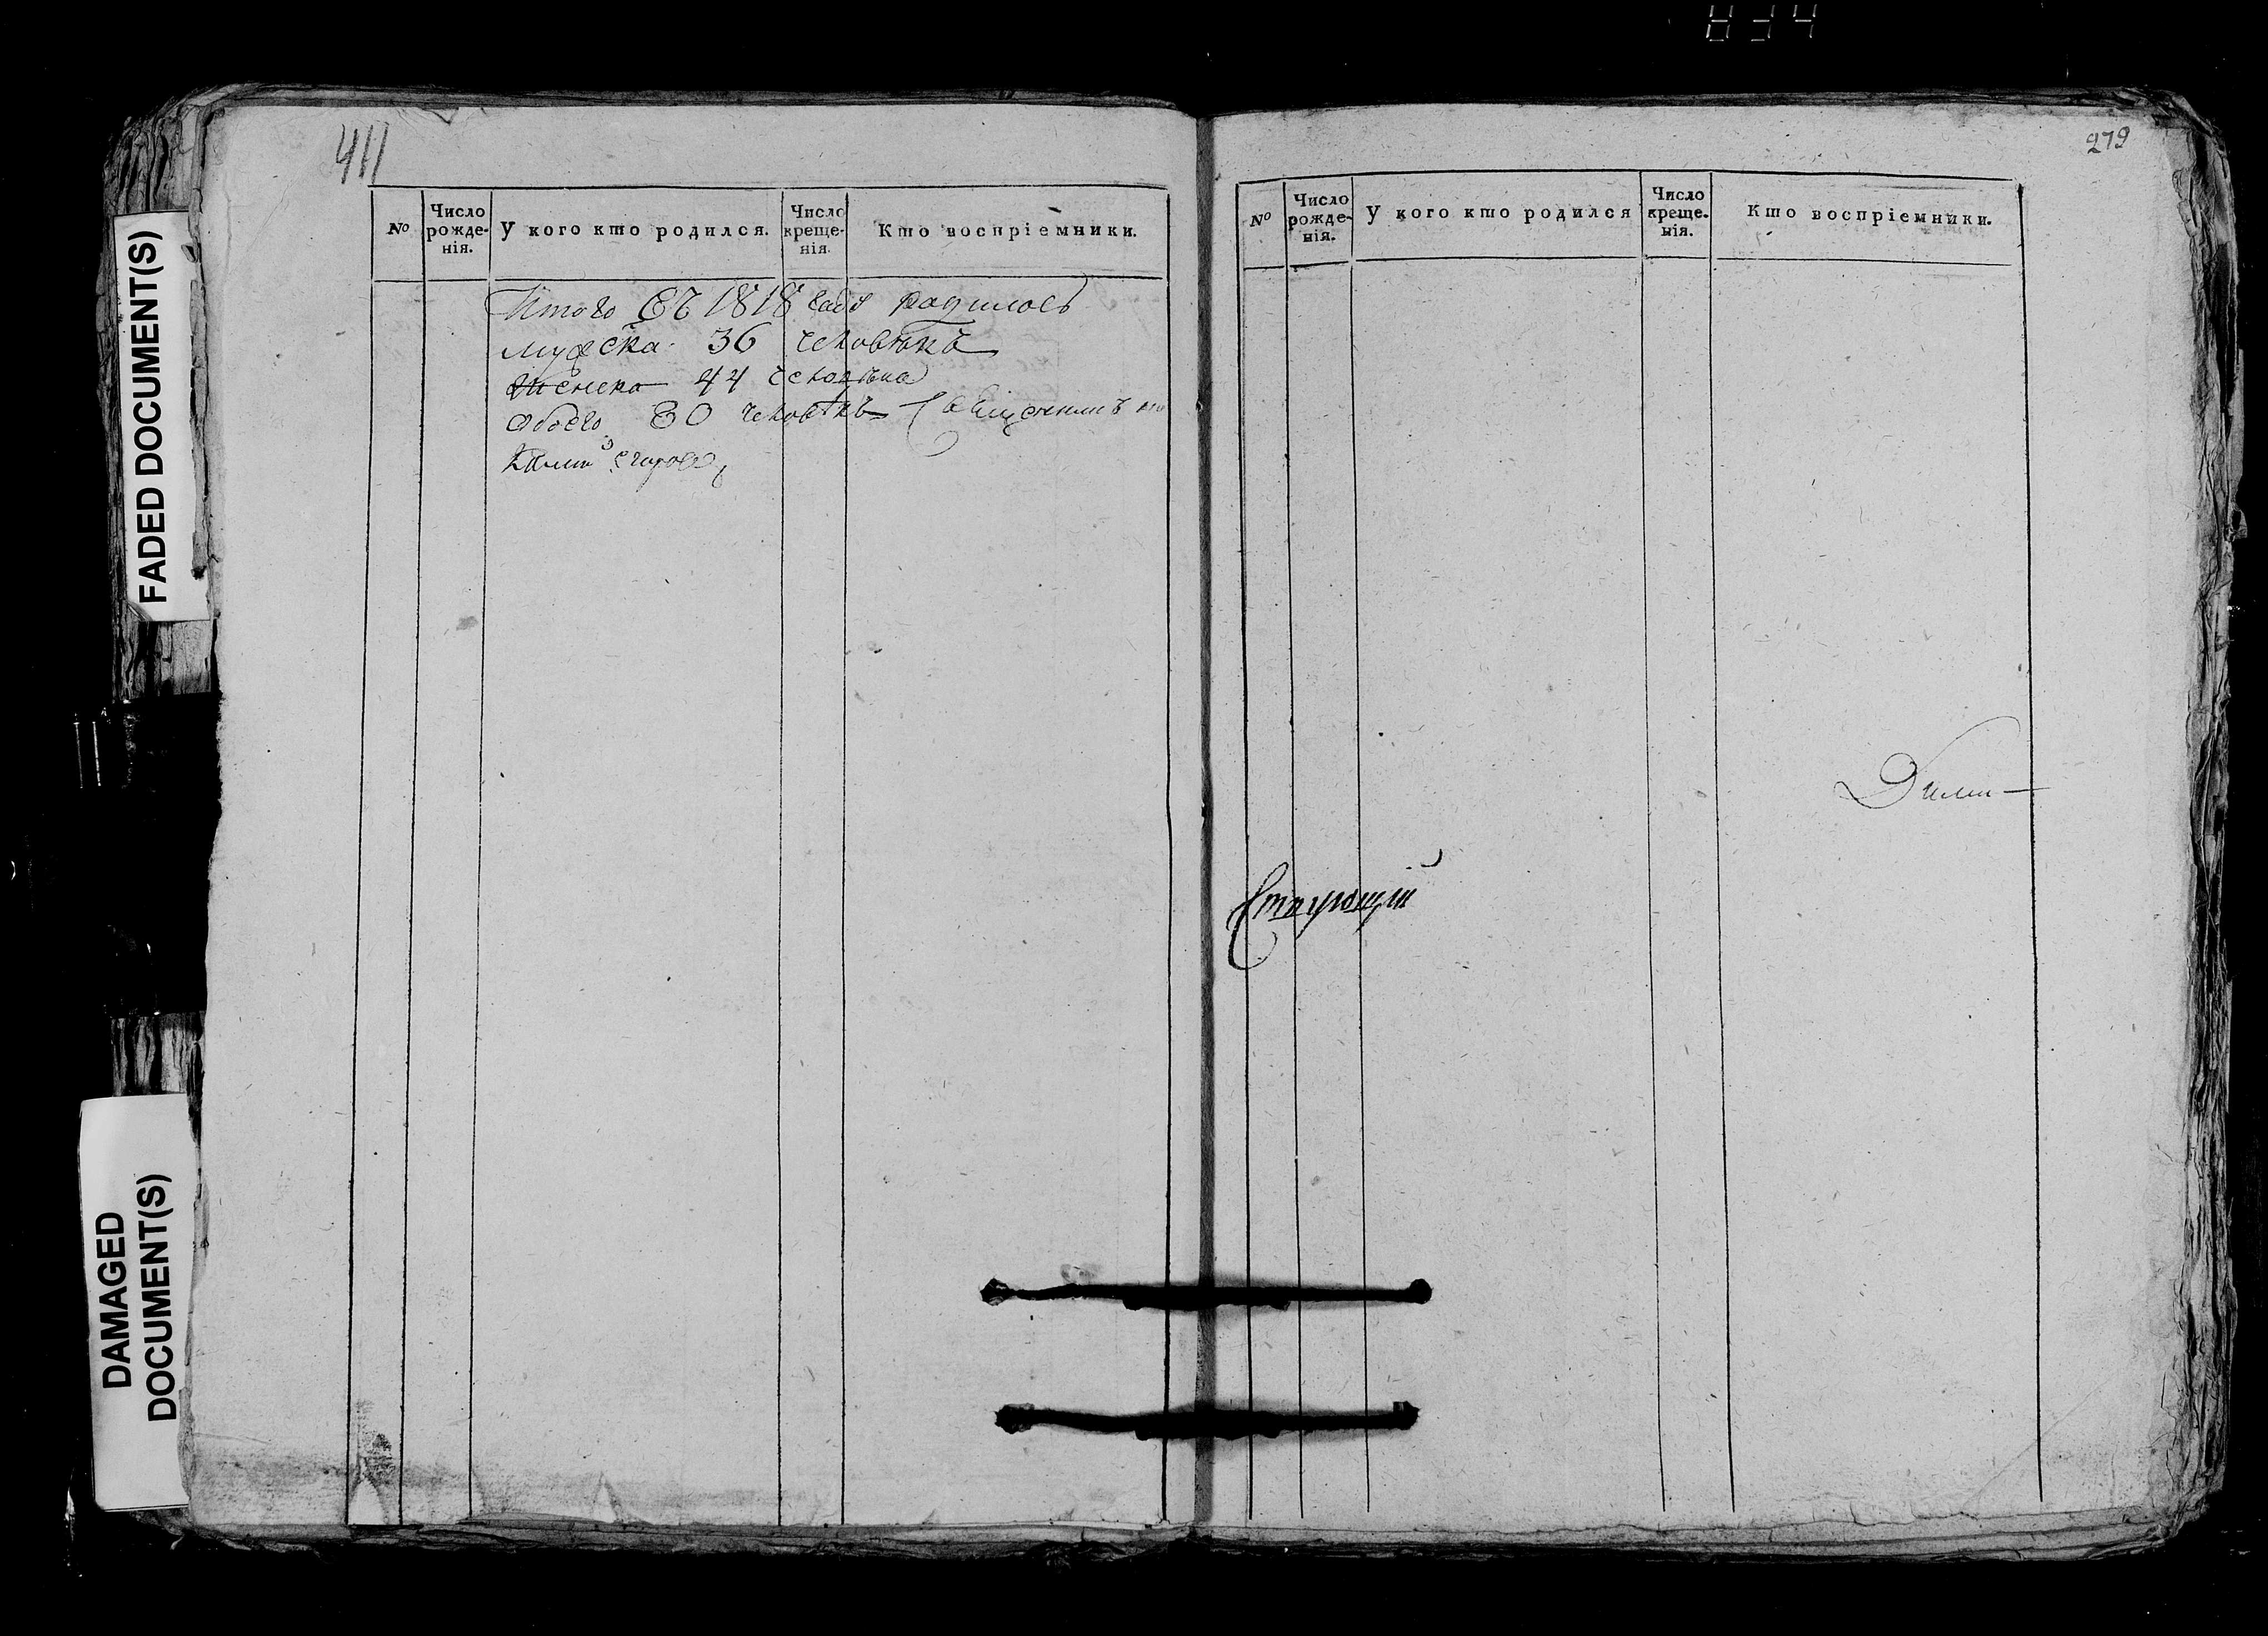 834
FADED DOCUMENT(S)
DAMAGED
DOCUMENT(S)
411
№
Число рожде-нія.
У кого кто родился.
Число креще-нія.
Кто воспріемники.
Итого въ 1818 году родилось
мужска 36 человѣкъ
женска 44 человѣка
обоего 80 человѣкъ Священникъ
Егоровъ
279
№
Число рожде-нія.
У кого кто родился
Число креще-нія.
Кто воспріемники.